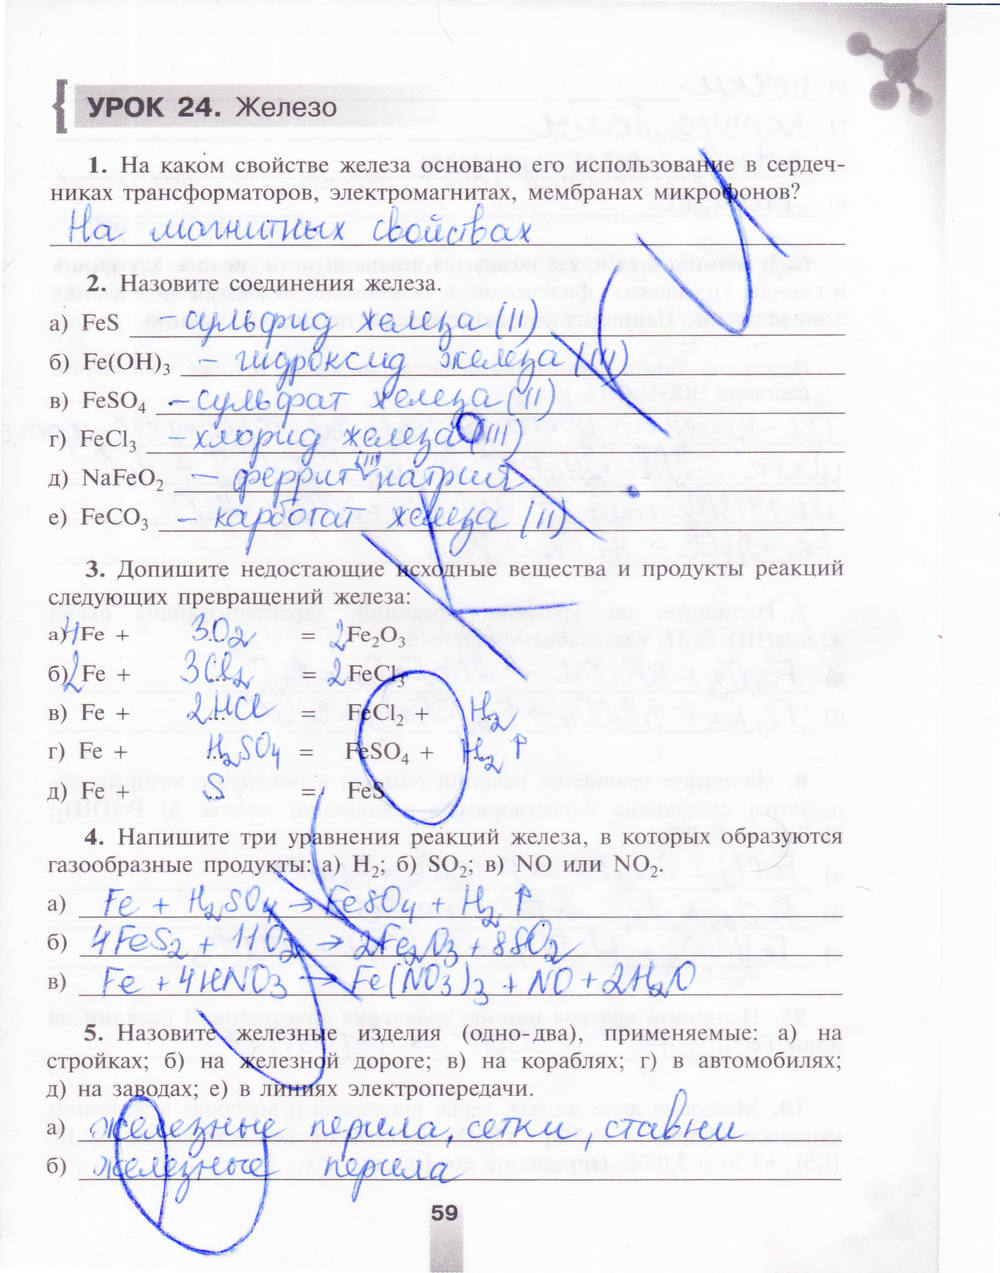 УРОК 24. Железо
1. На каком свойстве железа основано его использование в сердеч-
никах трансформаторов, электромагнитах, мембранах микрофонов?
На магнитных свойствах
2. Назовите соединения железа.
а) FeS – сульфид железа (II)
б) Fe(OH)₃ – гидроксид железа (III)
в) FeSO₄ – сульфат железа (II)
г) FeCl₃ – хлорид железа (III)
д) NaFeO₂ – феррит (III) натрия
е) FeCO₃ – карботат железа (II)
3. Допишите недостающие исходные вещества и продукты реакций
следующих превращений железа:
а) 4Fe + 3O₂ = 2Fe₂O₃
б) 2Fe + 3Cl₂ = 2FeCl₃
в) Fe + 2HCl = FeCl₂ + H₂
г) Fe + H₂SO₄ = FeSO₄ + H₂↑
д) Fe + S = FeS
4. Напишите три уравнения реакций железа, в которых образуются
газообразные продукты: а) H₂; б) SO₂; в) NO или NO₂.
а) Fe + H₂SO₄ → FeSO₄ + H₂↑
б) 4FeS₂ + 11O₂ → 2Fe₂O₃ + 8SO₂
в) Fe + 4HNO₃ → Fe(NO₃)₃ + NO + 2H₂O
5. Назовите железные изделия (одно-два), применяемые: а) на
стройках; б) на железной дороге; в) на кораблях; г) в автомобилях;
д) на заводах; е) в линиях электропередачи.
а) железные перила, сетки, ставни
б) железные перила
59